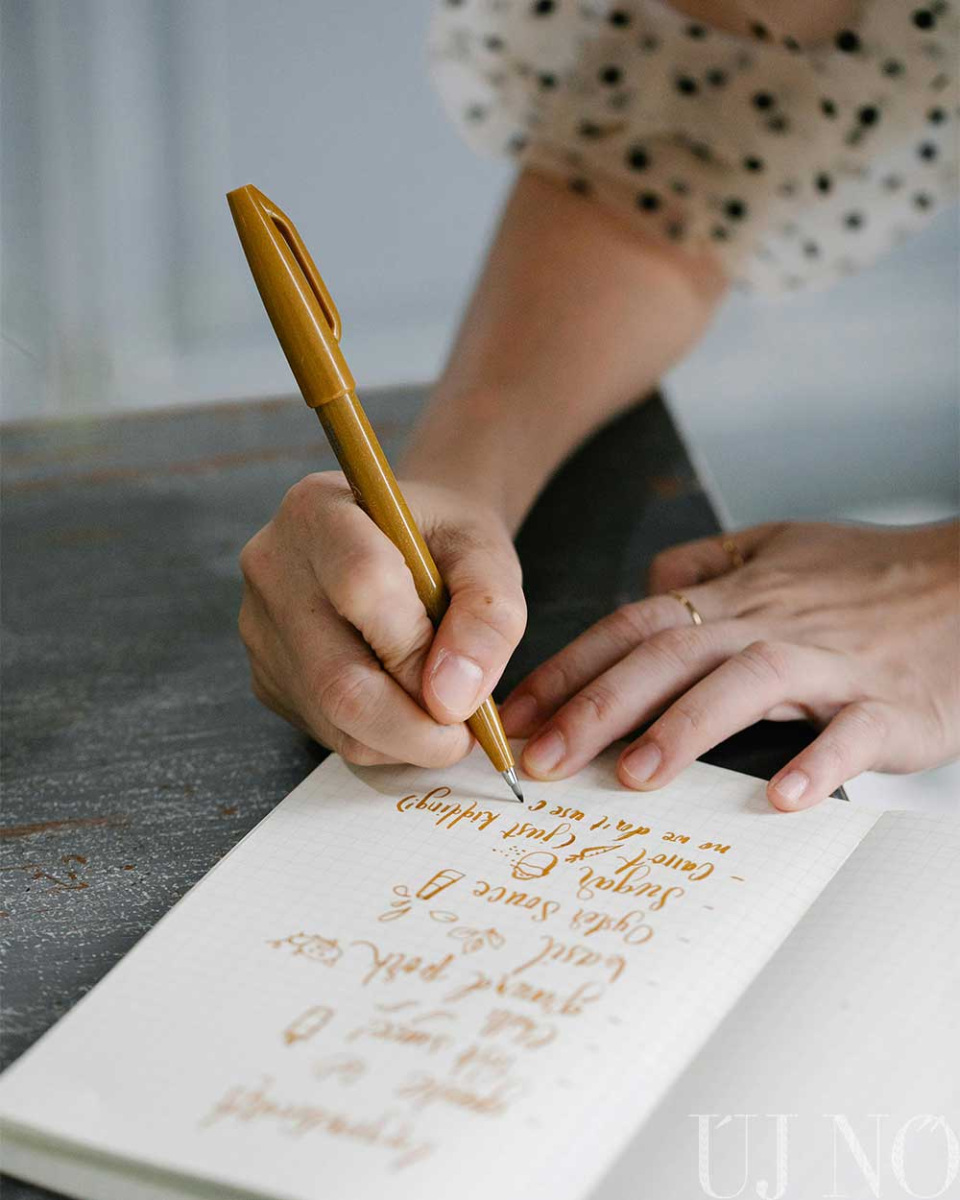 Ingredients
- garlic
- fish sauce
- Chili
- ground pork
- basil
- Oyster Souce
- Sugar
- Carrot (just kidding!)
no we don't use c
ÚJ NŐ